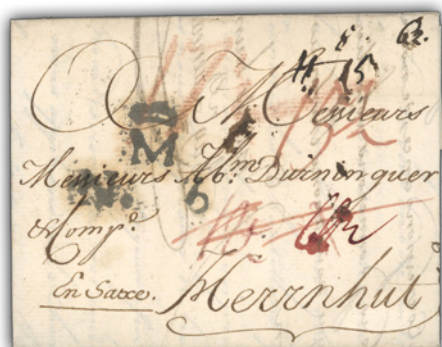 8. 62.
# 15
A Messieurs
M
Messieurs Abm. Durnonguer
6
& Comp.e
En Saxe. Herrnhut